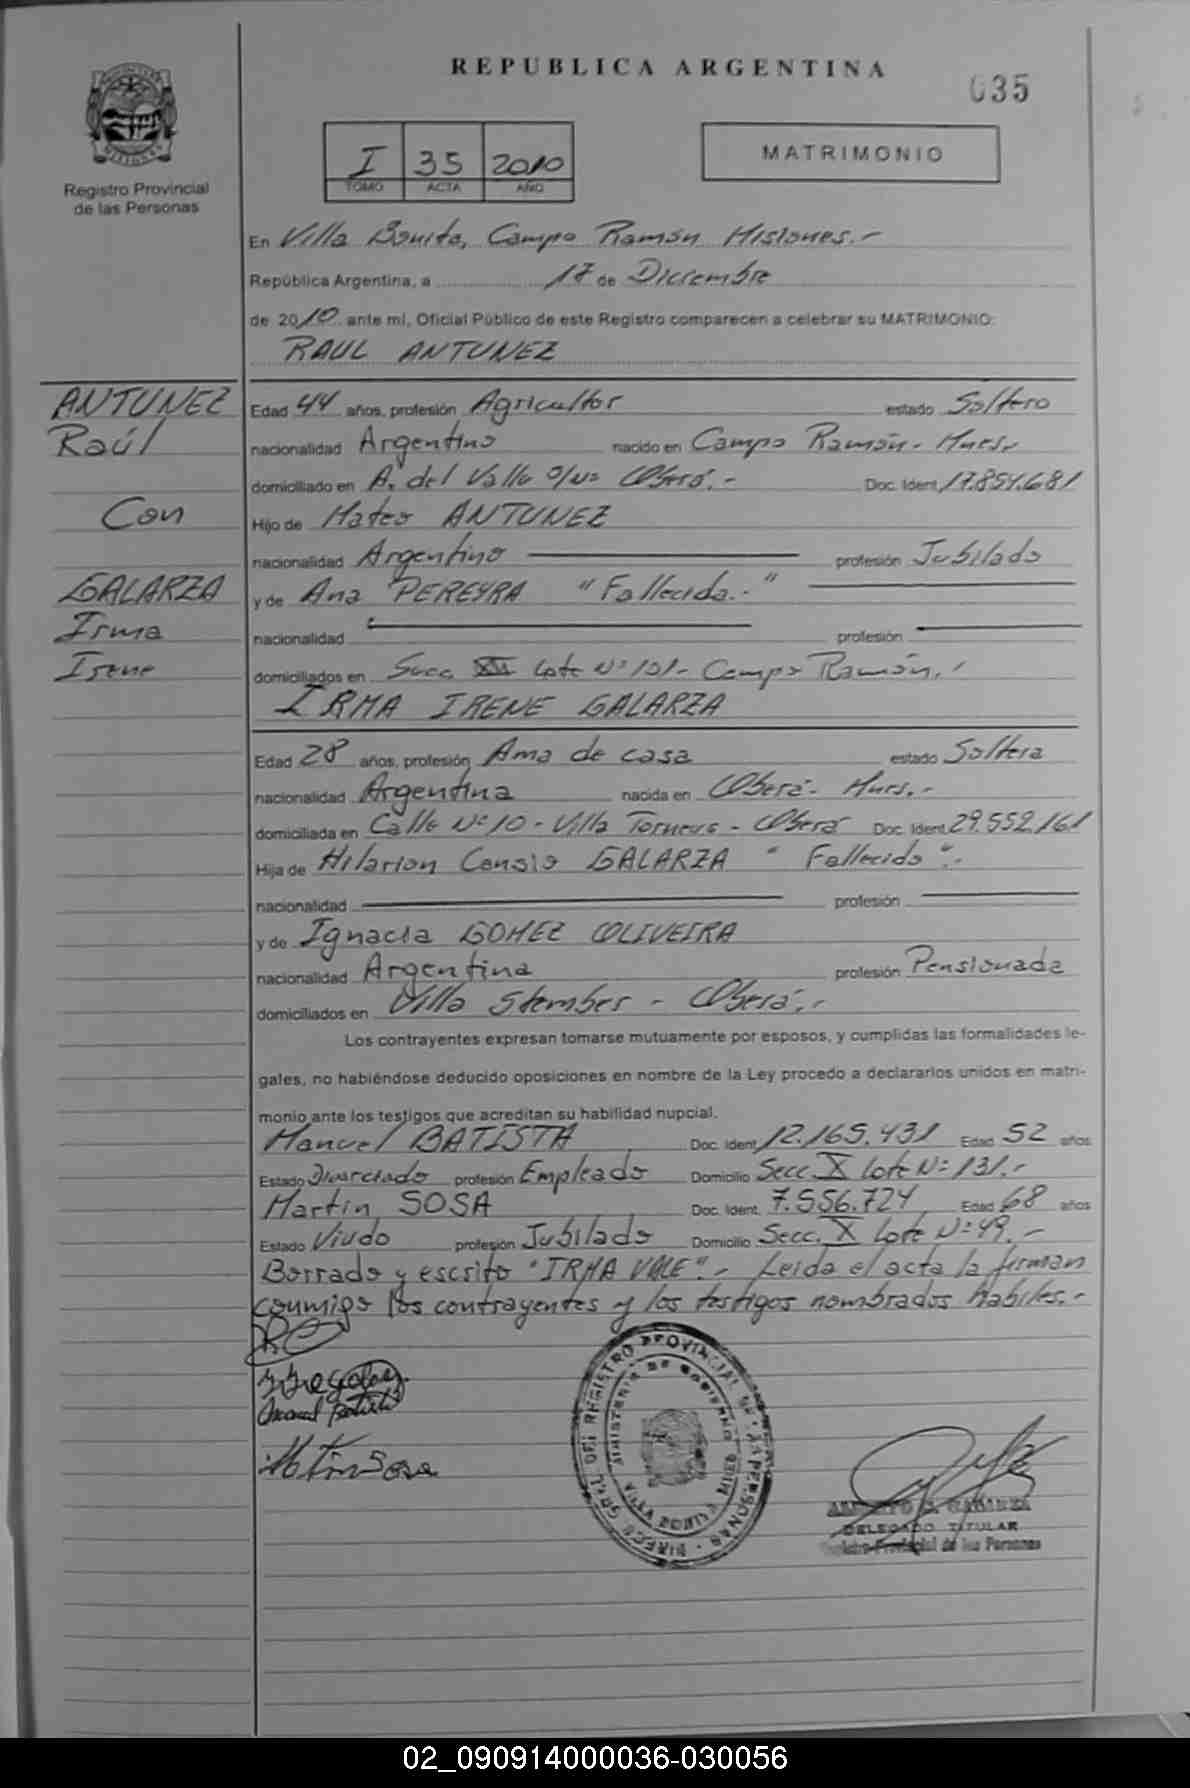 REPUBLICA ARGENTINA
035
I 35 2010
TOMO ACTA AÑO
MATRIMONIO
Registro Provincial
de las Personas
En Villa Bonita, Campo Ramón Misiones.-
República Argentina, a 17 de Diciembre
de 2010 ante mí, Oficial Público de este Registro comparecen a celebrar su MATRIMONIO:
RAUL ANTUNEZ
ANTUNEZ
Raúl
Con
GALARZA
Irma
Irene
Edad 44 años, profesión Agricultor estado Soltero
nacionalidad Argentino nacido en Campo Ramón - Mnes.
domiciliado en A. del Valle s/Nº Oberá.- Doc. Ident. 17.854.681
Hijo de Mateo ANTUNEZ
nacionalidad Argentino profesión Jubilado
y de Ana PEREYRA "Fallecida.-"
nacionalidad profesión
domiciliados en Secc. Lote Nº 101- Campo Ramón.
IRMA IRENE GALARZA
Edad 28 años, profesión Ama de casa estado Soltera
nacionalidad Argentina nacida en Oberá- Mnes.-
domiciliada en Calle Nº 10 - Villa - Oberá Doc. Ident. 29.552.161
Hija de Hilarion GALARZA "Fallecido".-
nacionalidad profesión
y de Ignacia GOMEZ OLIVEIRA
nacionalidad Argentina profesión Pensionada
domiciliados en Villa - Oberá.-
Los contrayentes expresan tomarse mutuamente por esposos, y cumplidas las formalidades le-
gales, no habiéndose deducido oposiciones en nombre de la Ley procedo a declararlos unidos en matri-
monio ante los testigos que acreditan su habilidad nupcial.
Manuel BATISTA Doc. Ident. 12.165.431 Edad 52 años
Estado Divorciado profesión Empleado Domicilio Secc. X Lote Nº 131.-
Martin SOSA Doc. Ident. 7.556.724 Edad 68 años
Estado Viudo profesión Jubilado Domicilio Secc. X Lote Nº 49.-
Borrado y escrito "IRMA VALE".- Leída el acta la firman
conmigo los contrayentes y los testigos nombrados hábiles.-
Manuel Batista
Martin Sosa
DELEGADO TITULAR
Registro Provincial de las Personas
02_090914000036-030056